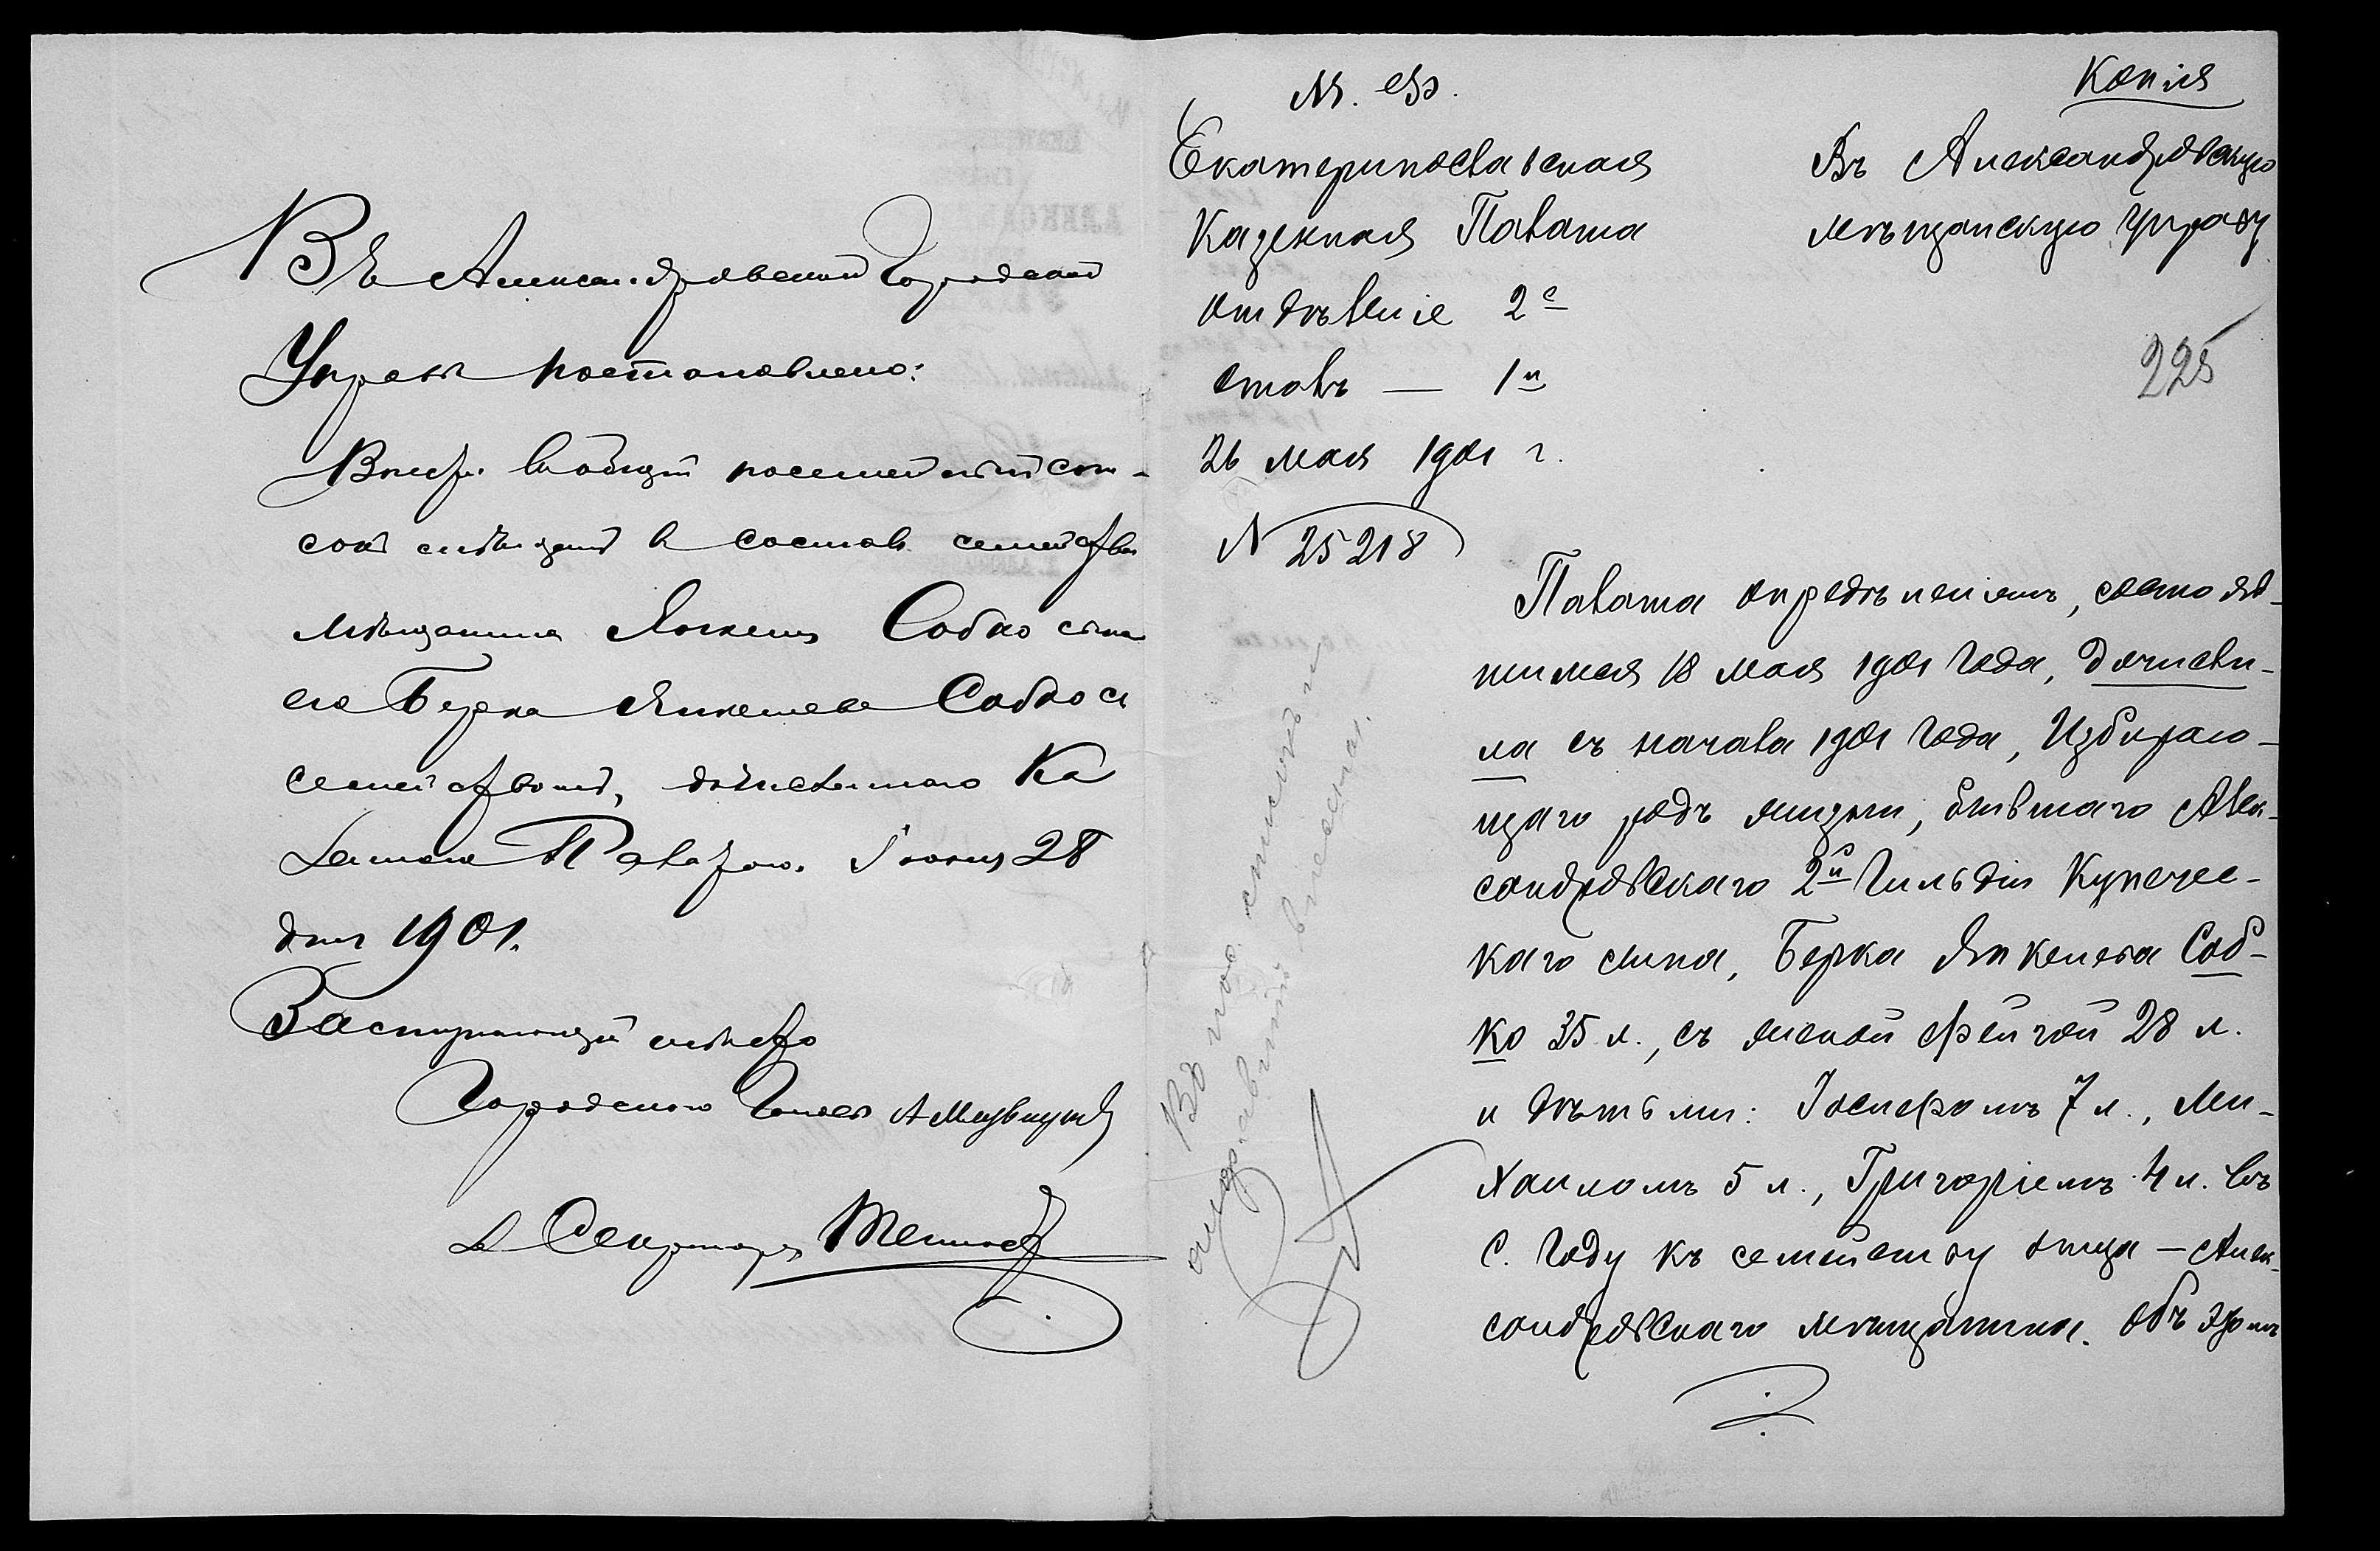 Въ Александровской Городской
Управѣ постановлено:
Внести въ общій посемейный спи-
сокъ мѣщанъ въ составъ семейства
мѣщанина Янкеля Собко сына
его Берка Янкелева Собко съ
семействомъ, дочисленнаго Ка
зенной Палатою. Іюня 28
дня 1901.
Заступающій мѣсто
Городского Головы
Секретарь
М. Ф.
Екатеринославская
Казенная Палата
отдѣленіе 2е
столъ — 1й
26 мая 1901 г.
№ 25218
Копія
Въ Александровскую
мѣщанскую Управу
225
Палата опредѣленіемъ, состояв-
шимся 18 мая 1901 года, дочисли-
ла съ начала 1901 года, Избираю-
щаго родъ жизни, бывшаго Алек-
сандровскаго 2й Гильдіи Купечес-
каго сына, Берка Янкелева Соб-
ко 35 л., съ женой Фейгой 28 л.
и дѣтьми: Іосифомъ 7 л., Ми-
хаиломъ 5 л., Григоріемъ 4 л. въ
С. Году къ семейству отца — Алек-
сандровскаго мѣщанина. Объ этомъ
Въ пос. списокъ и
алфавитъ внесена.